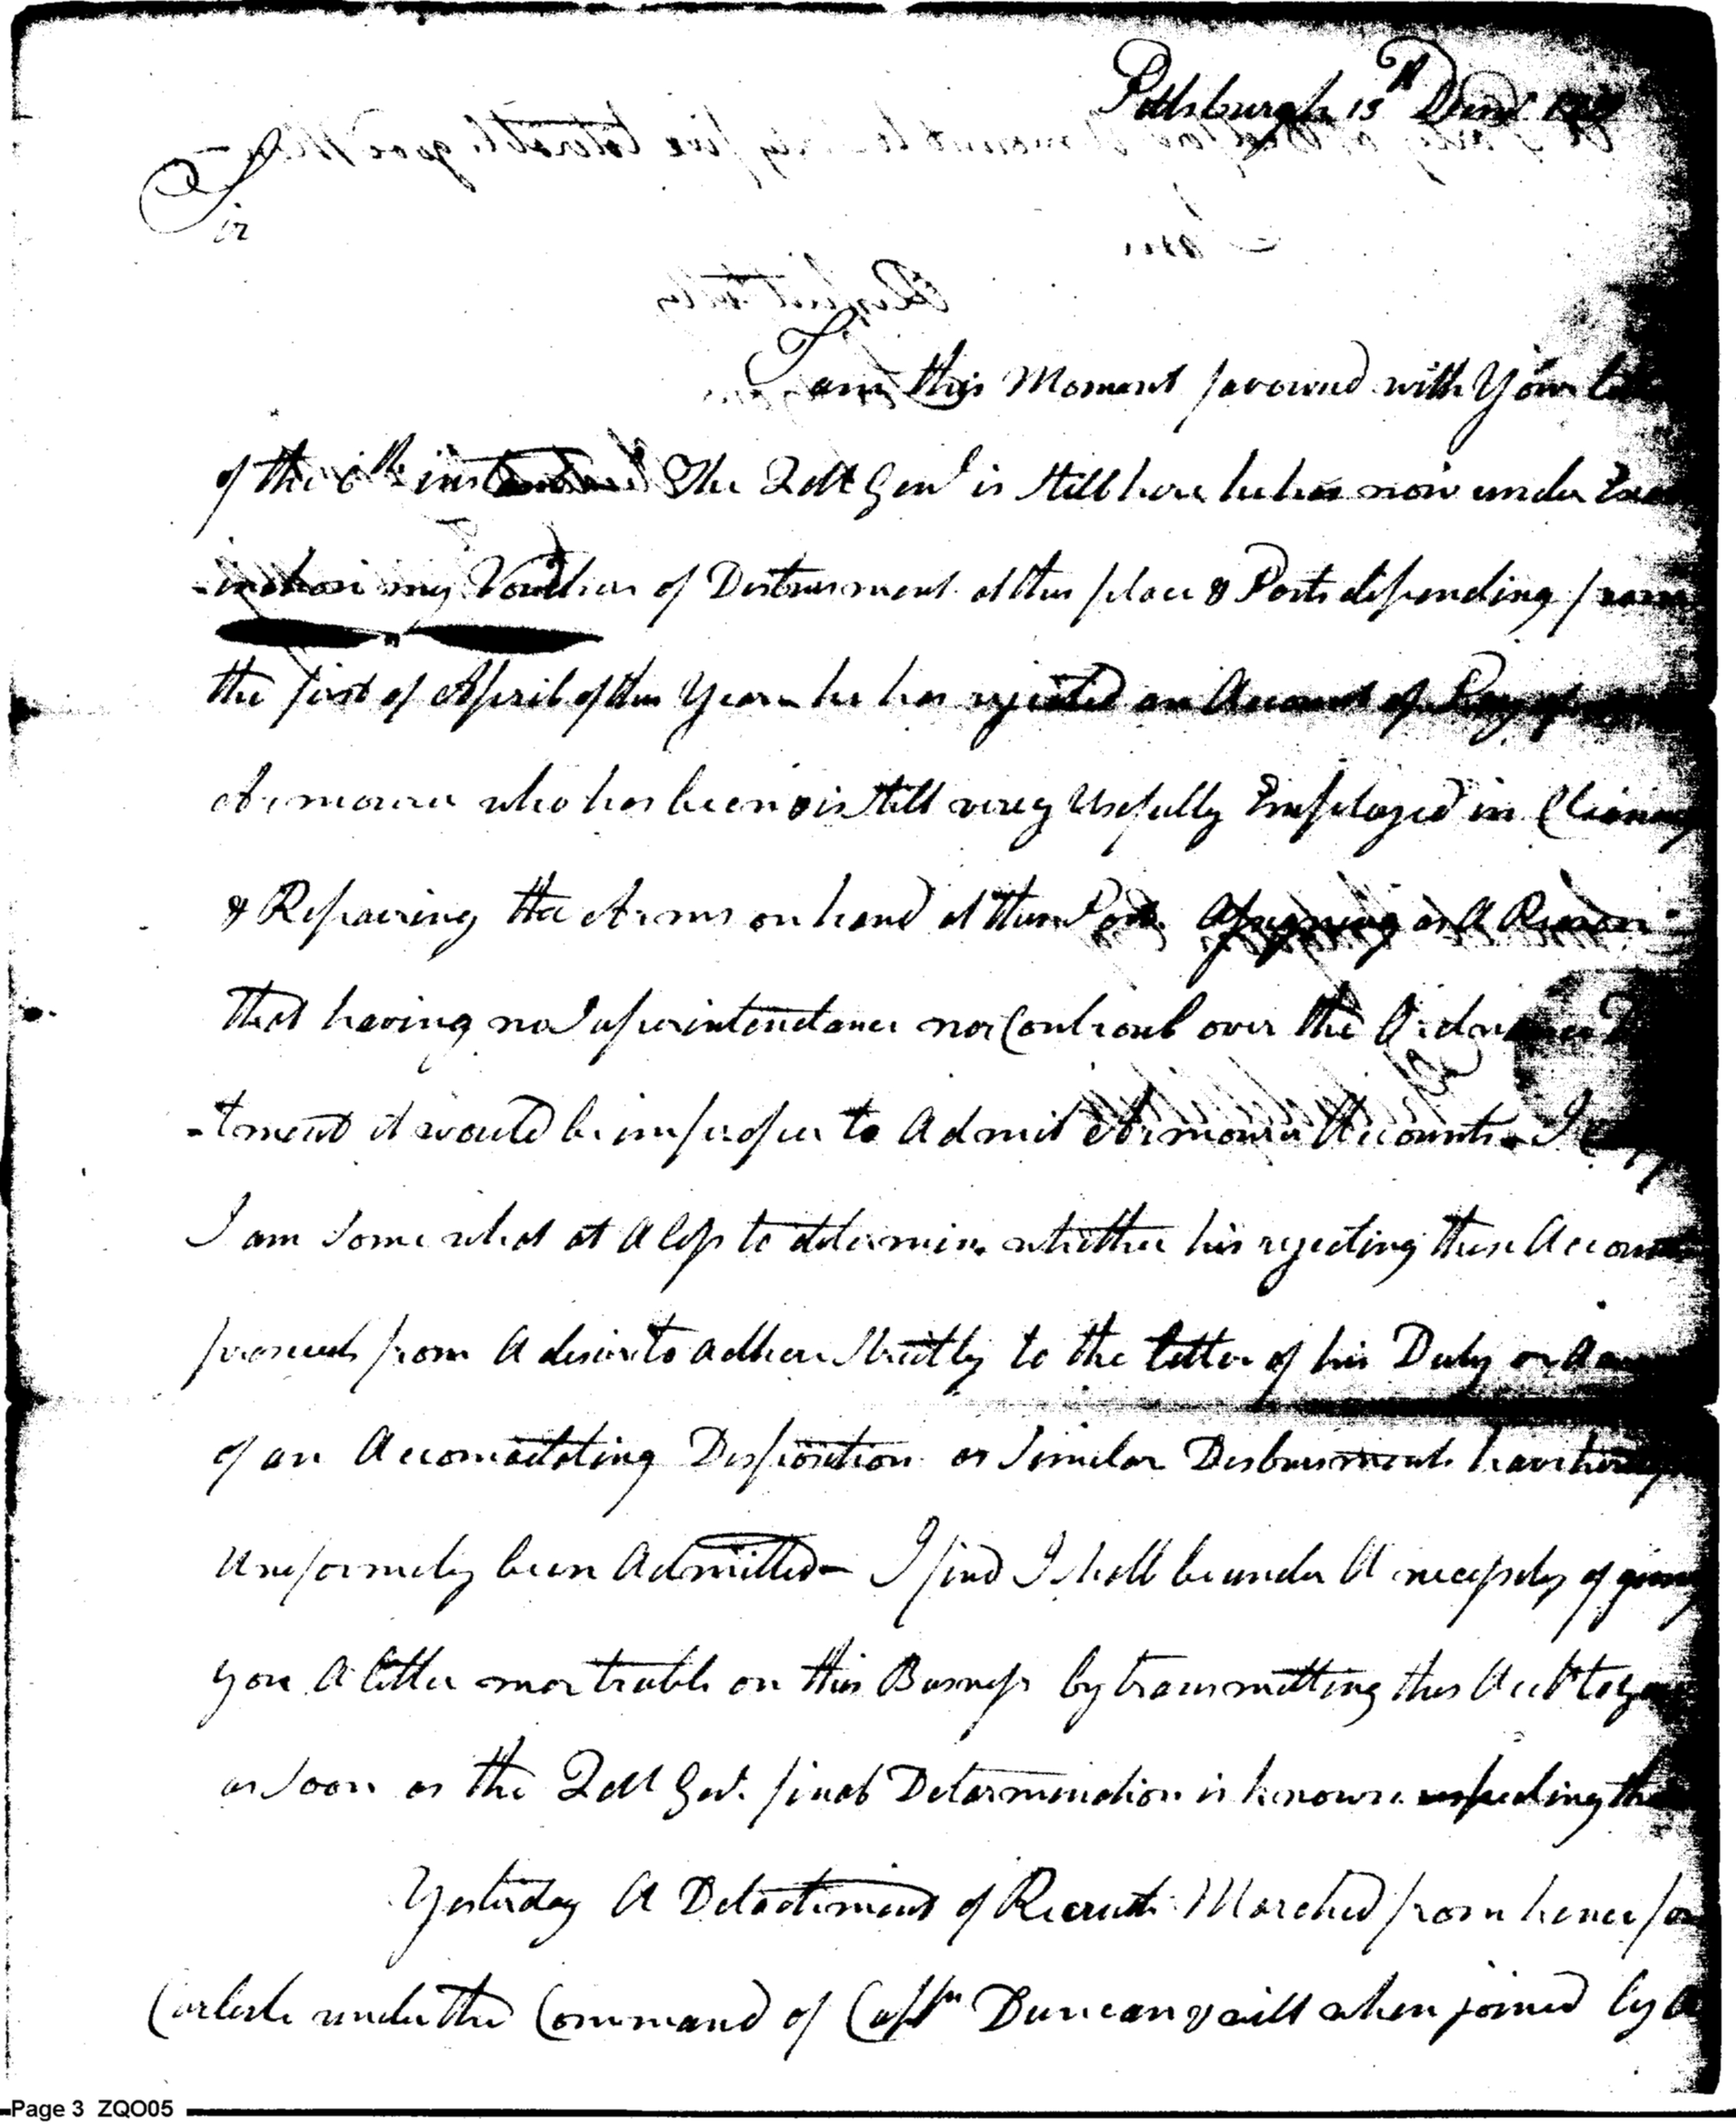 Pittsburgh 15th Decmr
Sir
I am this Moment favoured with Your
of the 6th instant The QM Genl is still here he has now under
-ination my Vouchers of Disbursment at this place & Posts depending from
the first of April of this Year he has rejected an Account of Pay of
Armourer who has been & is still very Usefully Employed in Cleaning
& Repairing the Arms on hand at this Post Assigning as A Reason
that having no Superintendance nor Controul over the Ordnance
-tment it would be improper to Admit Armourers Accounts
I am Some what at A loss to determine whether his rejecting these Accounts
proceeds from A desire to adhere Strictly to the letter of his Duty or A
of an Accomadating Disposition as Similar Disbursments have
Uniformely been Admitted — I find I shall be under A necessity of giving
you A little mor truble on this Busness by transmitting this Acct to you
as Soon as the QM Genl final Determination is known respecting
Yesterday A Detachment of Recruits Marched from hence for
Carlisle under the Command of Captn Duncan & will when joined by A
Page 3 ZQO05